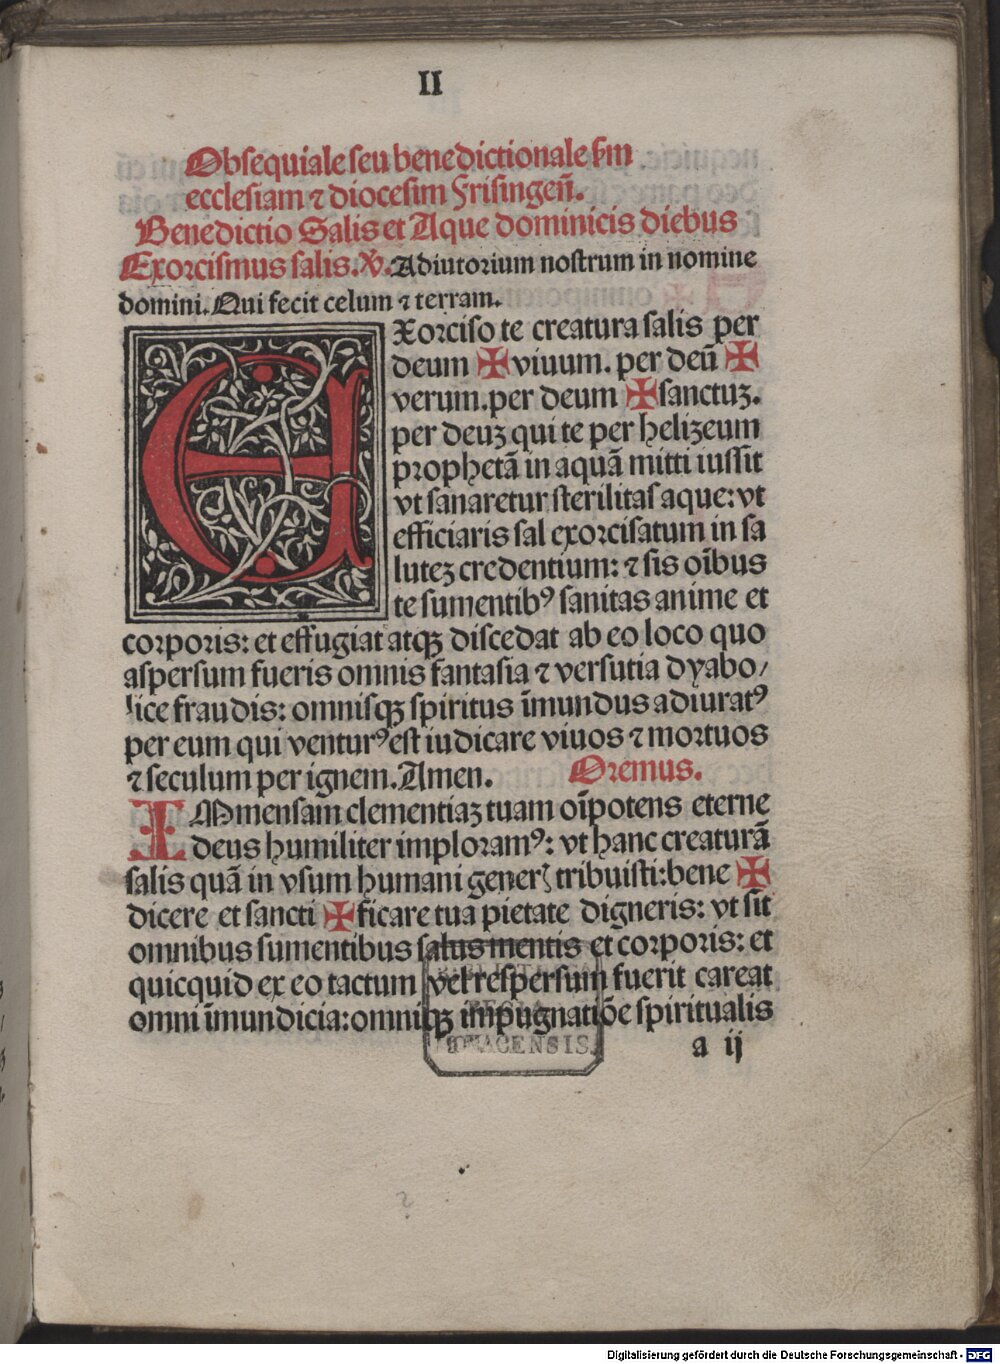 II
Obsequiale seu benedictionale ẜm
ecclesiam ⁊ diocesim Frisingen̄.
Benedictio Salis et Aque dominicis diebus
Exorcismus salis. ℣. Adiutorium nostrum in nomine
domini. Qui fecit celum ⁊ terram.
EXorciso te creatura salis per
deum ✠ viuum. per deū ✠
verum. per deum ✠ sanctuꝫ.
per deuꝫ qui te per helizeum
prophetā in aquā mitti iussit
vt sanaretur sterilitas aque: vt
efficiaris sal exorcisatum in sa
luteꝫ credentium: ⁊ sis oībus
te sumentibꝰ sanitas anime et
corporis: et effugiat atqꝫ discedat ab eo loco quo
aspersum fueris omnis fantasia ⁊ versutia dyabo/
lice fraudis: omnisqꝫ spiritus īmundus adiuratꝰ
per eum qui venturꝰ est iudicare viuos ⁊ mortuos
⁊ seculum per ignem. Amen. Oremus.
IMmensam clementiaꝫ tuam oīpotens eterne
deus humiliter imploramꝰ: vt hanc creaturā
salis quā in vsum humani generꝭ tribuisti: bene ✠
dicere et sancti ✠ ficare tua pietate digneris: vt sit
omnibus sumentibus salus mentis et corporis: et
quicquid ex eo tactum vel respersum fuerit careat
omni īmundicia: omniqꝫ impugnatiōe spiritualis
a ij
REGIA
MONACENSIS.
Digitalisierung gefördert durch die Deutsche Forschungsgemeinschaft - DFG